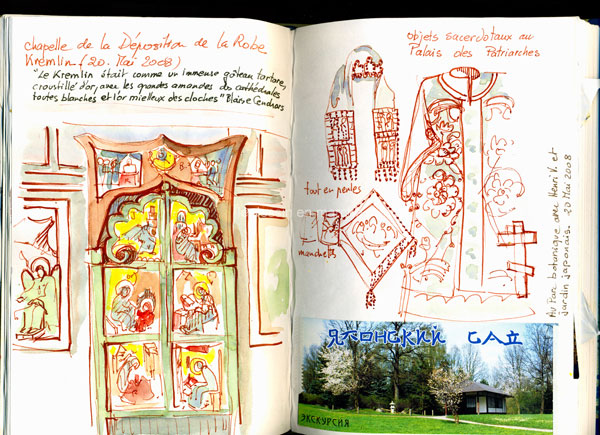 chapelle de la Déposition de la Robe
Kremlin (20. Mai 2008)
"Le Kremlin était comme un immense gâteau tartare,
croustillé d'or, avec les grandes amandes des cathédrales
toutes blanches et l'or mielleux des cloches" Blaise Cendrars
objets sacerdotaux au
Palais des Patriarches
tout en perles
manchettes
Au Parc botanique avec Henri V. et
jardin japonais. 20 Mai 2008
ЯПОНСКИЙ САД
ЭКСКУРСИЯ